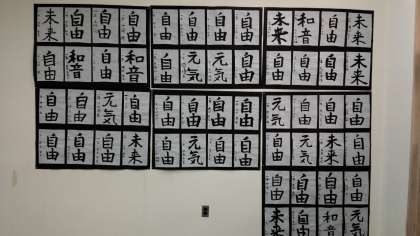 未来 自由 自由 自由
自由 和音 自由 和音
自由 自由 自由 自由
自由 元気 元気 自由
未来 和音 自由 未来
自由 自由 自由 未来
自由 自由 元気 自由
自由 自由 自由 未来
自由 自由 自由 自由
自由 元気 自由 自由
元気 自由 自由 自由
自由 元気 未来 自由
自由 自由 自由 自由
未来 自由 和音 元気